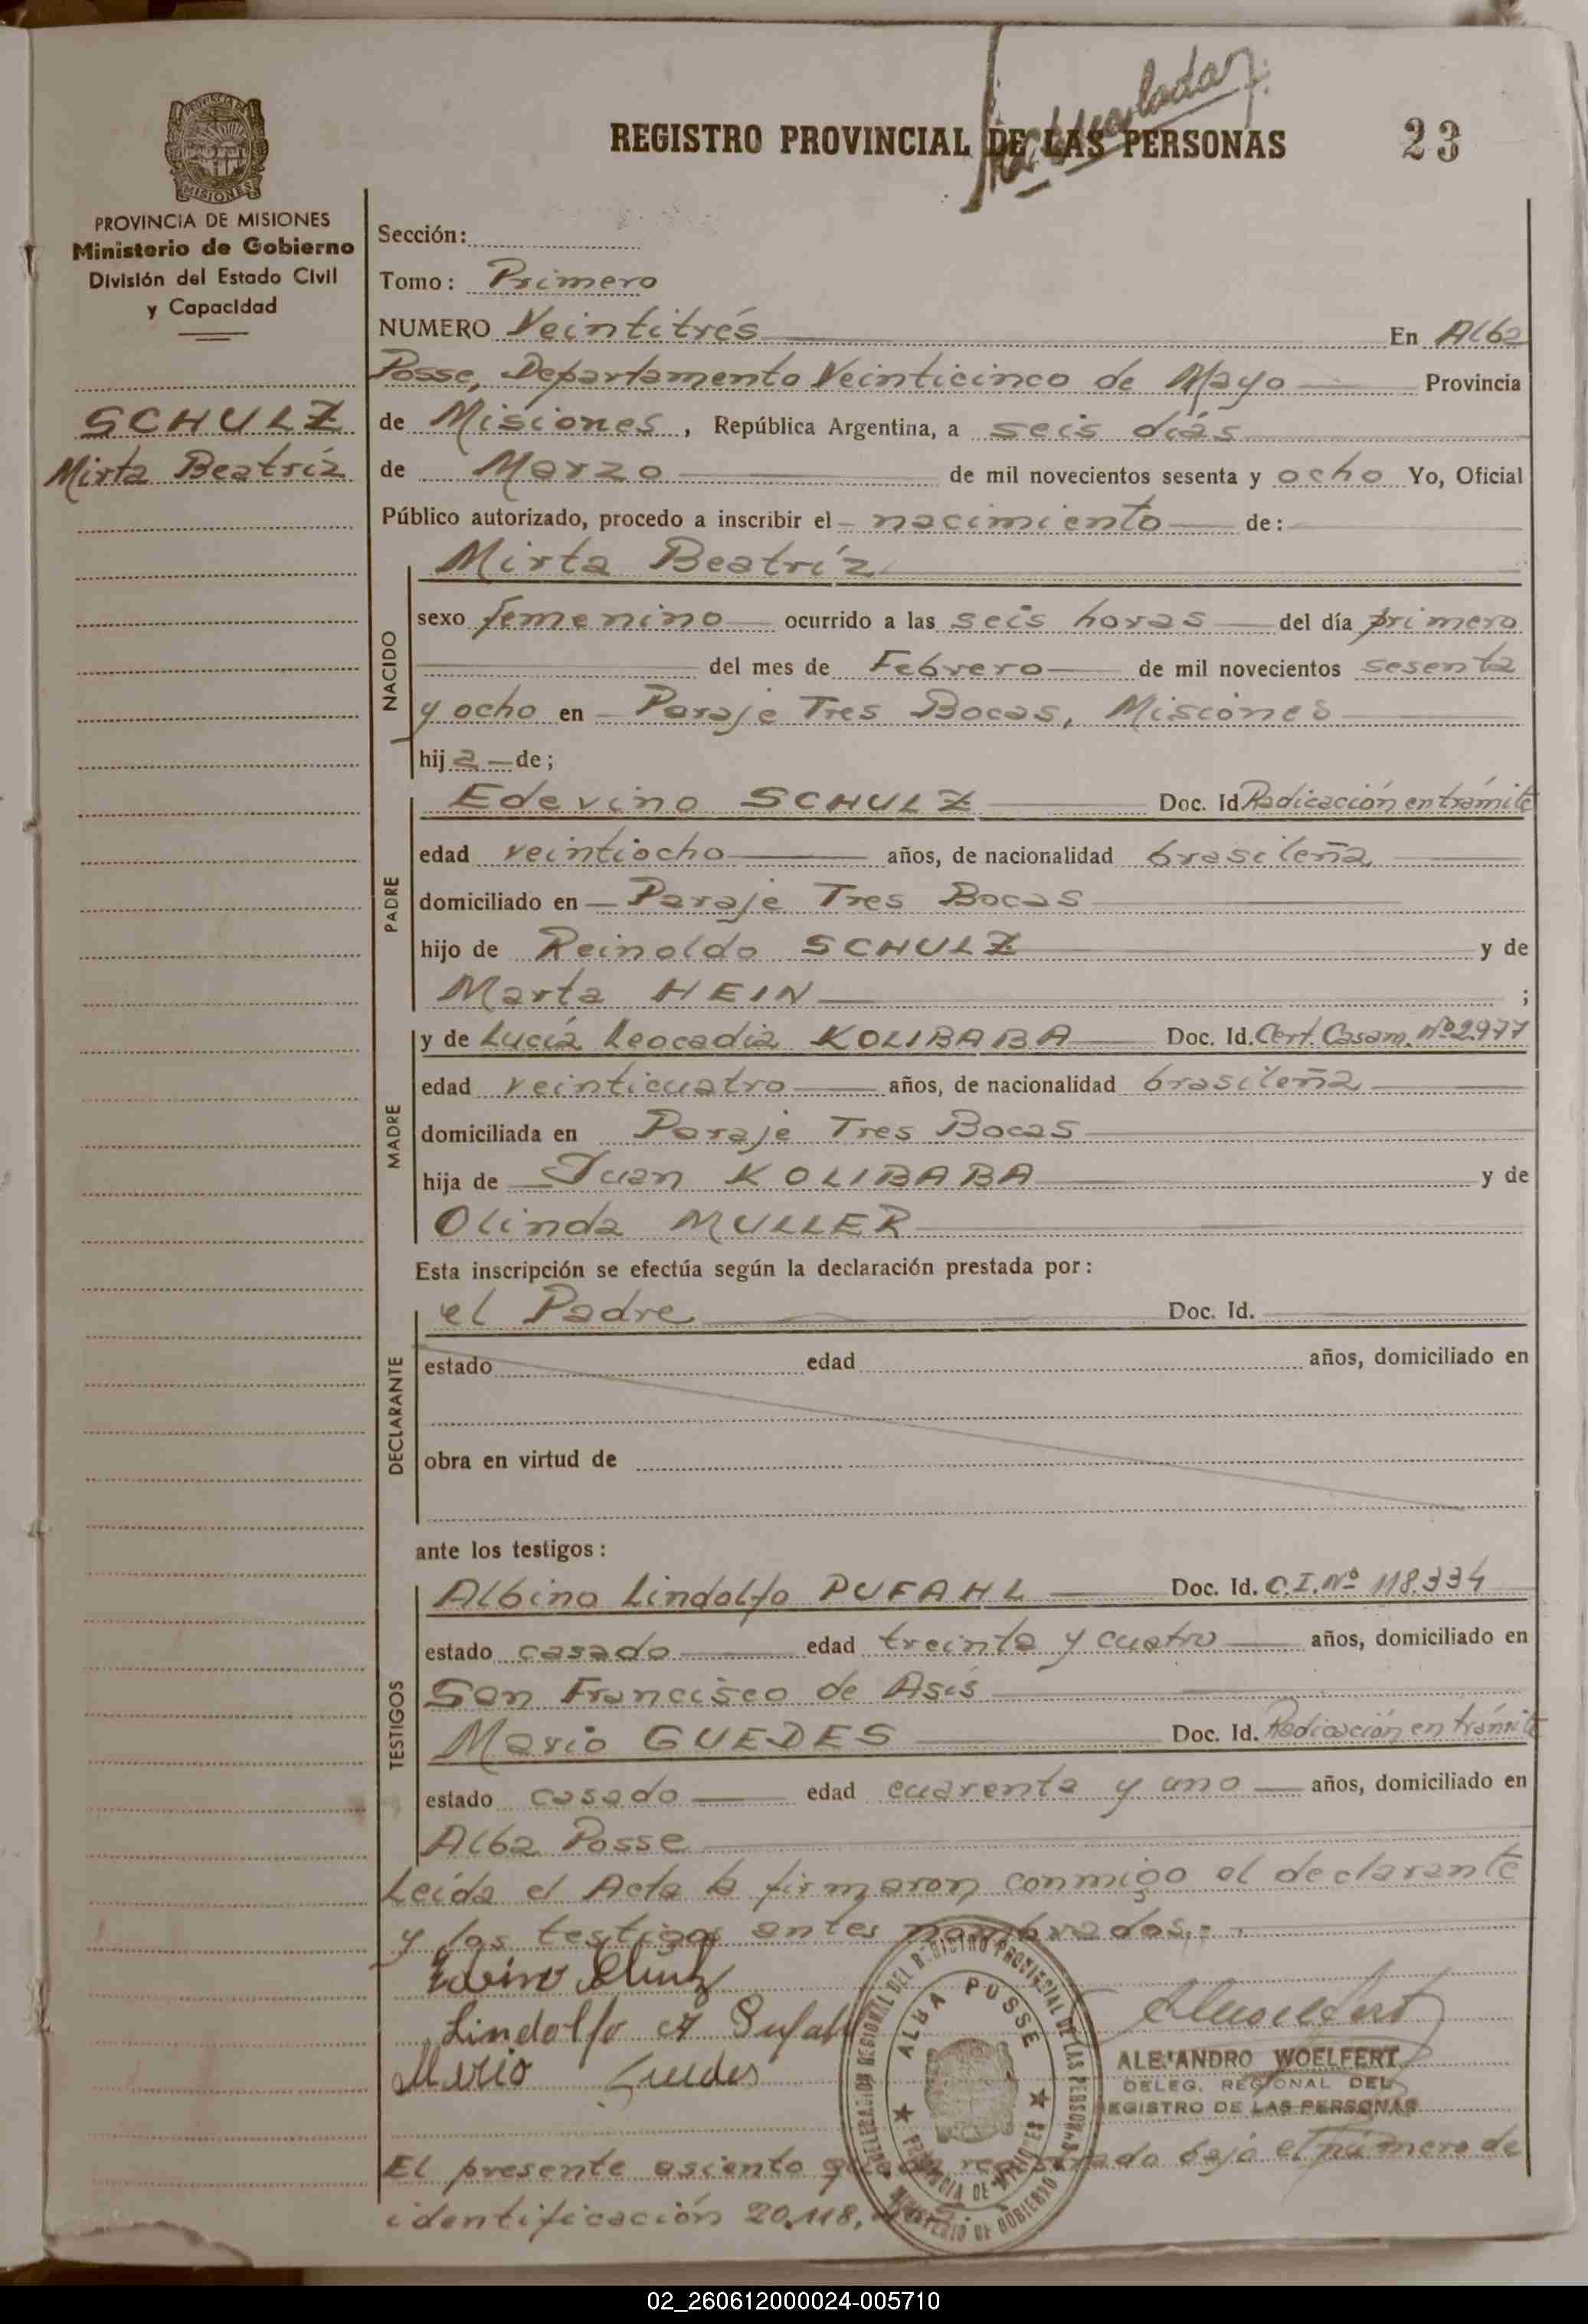 REGISTRO PROVINCIAL DE LAS PERSONAS 23
PROVINCIA DE MISIONES
Ministerio de Gobierno
División del Estado Civil
y Capacidad
SCHULZ
Mirta Beatríz
Sección:
Tomo: Primero
NUMERO Veintitrés En Alba
Posse, Departamento Veinticinco de Mayo Provincia
de Misiones, República Argentina, a seis días
de Marzo de mil novecientos sesenta y ocho Yo, Oficial
Público autorizado, procedo a inscribir el nacimiento de:
NACIDO
Mirta Beatríz
sexo femenino ocurrido a las seis horas del día primero
del mes de Febrero de mil novecientos sesenta
y ocho en Paraje Tres Bocas, Misiones
hija de;
PADRE
Edevino SCHULZ Doc. Id Radicación en trámite
edad veintiocho años, de nacionalidad brasileña
domiciliado en Paraje Tres Bocas
hijo de Reinoldo SCHULZ y de
Marta HEIN ;
MADRE
y de Lucía Leocadia KOLIBABA Doc. Id. Cert. Casam. Nº 2977
edad veinticuatro años, de nacionalidad brasileña
domiciliada en Paraje Tres Bocas
hija de Juan KOLIBABA y de
Olinda MULLER
Esta inscripción se efectúa según la declaración prestada por:
DECLARANTE
el Padre Doc. Id.
estado edad años, domiciliado en
obra en virtud de
ante los testigos:
TESTIGOS
Albino Lindolfo PUFAHL Doc. Id. C.I. Nº 118.334
estado casado edad treinta y cuatro años, domiciliado en
San Francisco de Asís
Mario GUEDES Doc. Id. Radicación en trámite
estado casado edad cuarenta y uno años, domiciliado en
Alba Posse
Leída el Acta la firmaron conmigo el declarante
y los testigos antes nombrados.-
Lindolfo A Pufahl
Mario Guedes
DELEGACION REGIONAL DEL REGISTRO PROVINCIAL DE LAS PERSONAS
ALBA POSSE
PROVINCIA DE MISIONES
MINISTERIO DE GOBIERNO
ALEJANDRO WOELFERT
DELEG. REGIONAL DEL
REGISTRO DE LAS PERSONAS
El presente asiento queda registrado bajo el número de
identificación 20.118.
02_260612000024-005710